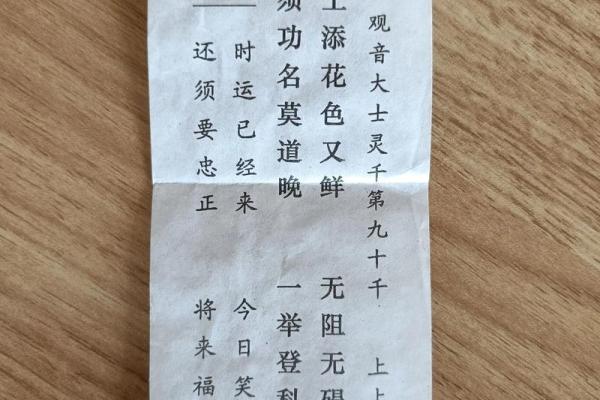 观音大士灵千第九十千 上上
上添花色又鲜 无阻无碍
须功名莫道晚 一举登科
时运已经来 今日笑
还须要忠正 将来福